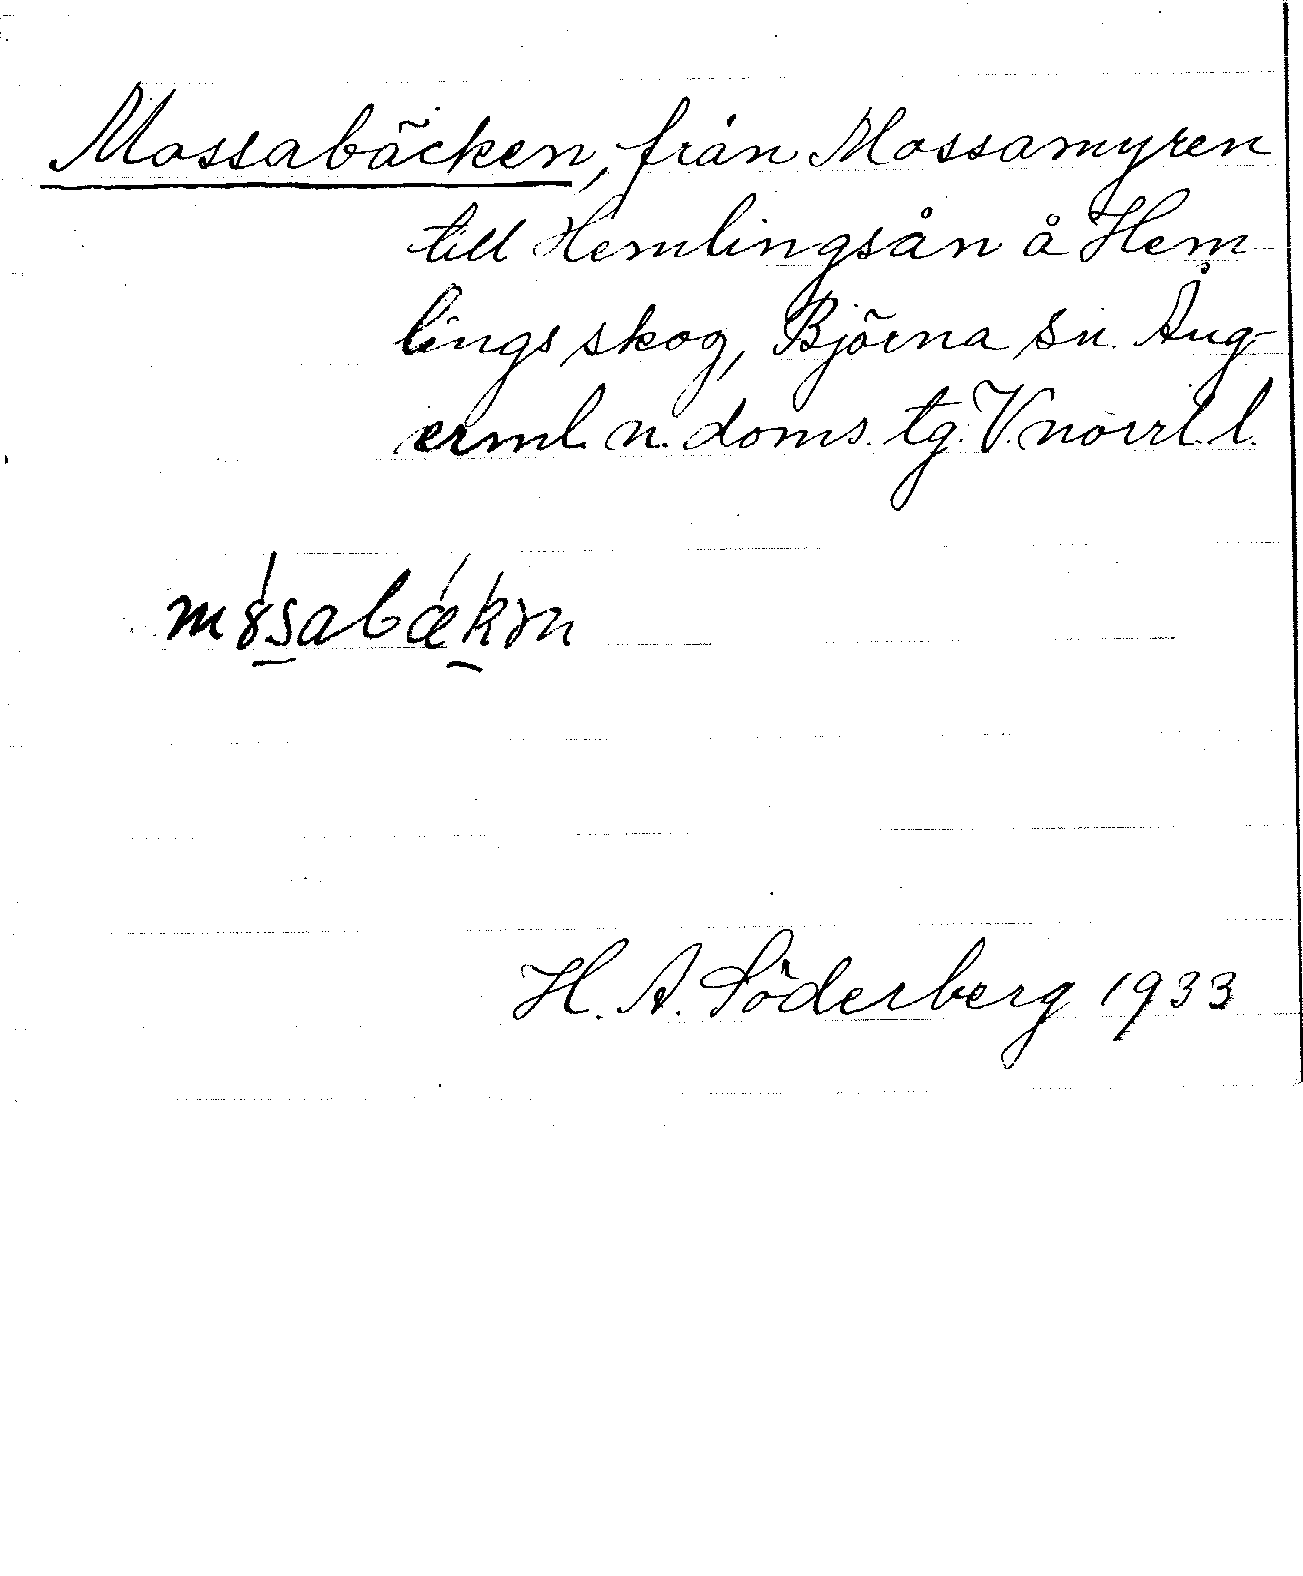 Mossabäcken, från Mossamyren
till Hemlingsån å Hem
lings skog, Björna sn. Ång-
erml. n. doms. tg. V.norrl. l.
mósabǽkən
H. A. Söderberg 1933